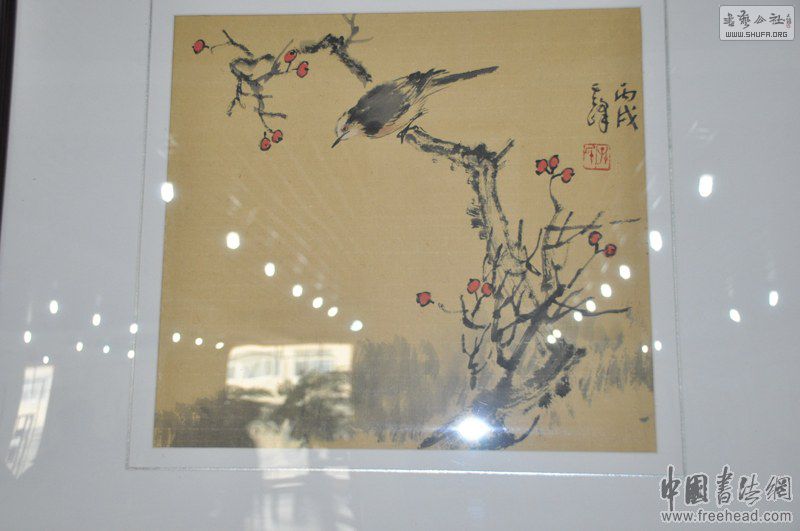 书艺公社
WWW.SHUFA.ORG
丙戌
中國書法網
www.freehead.com